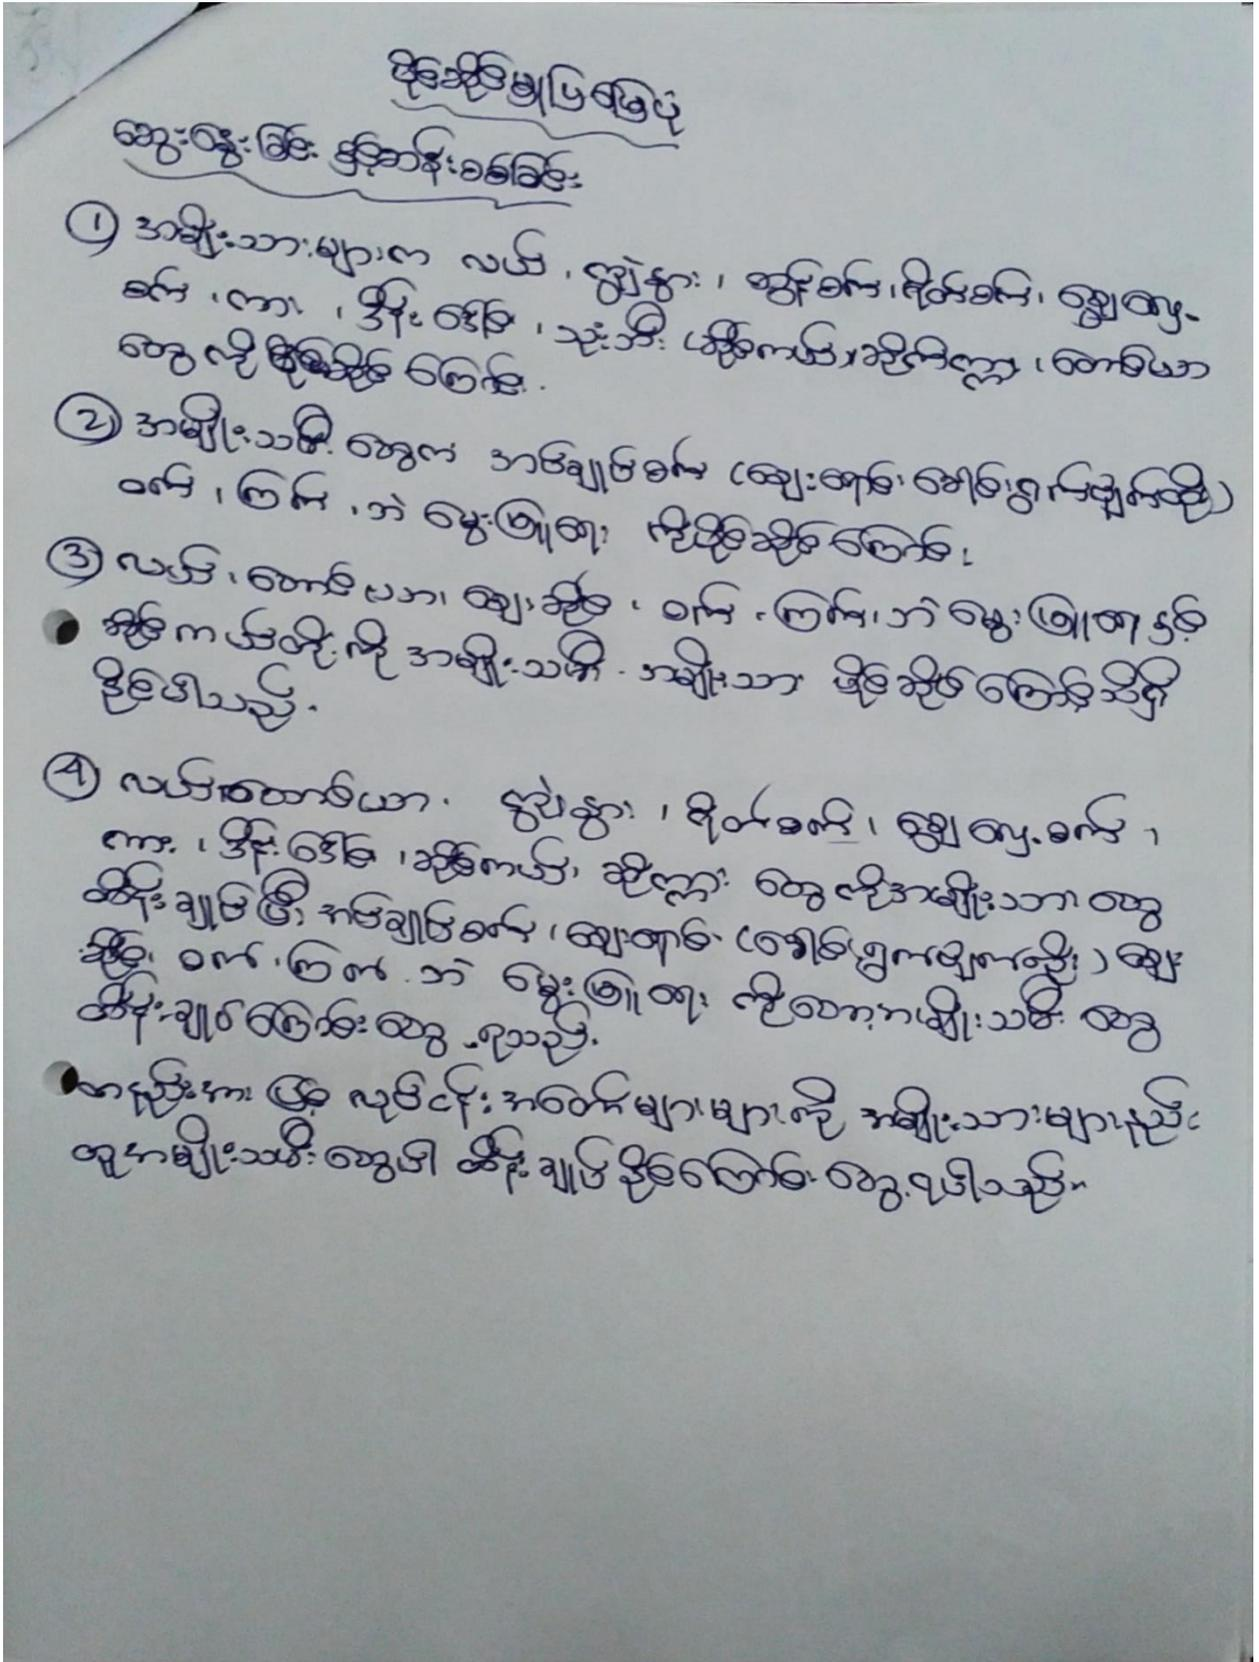 ပိုင်ဆိုင်မှုပြမြေပုံ
ဆွေးနွေးခြင်း နှင့်ဆန်းစစ်ခြင်း
① အမျိုးသားများက လယ်၊ ကျွဲနွား၊ ထွန်စက်၊ရိတ်စက်၊ ခြွေလှေ့
စက်၊ ကား၊ ဒိန်းဒေါင်၊ သုံးဘီး (ဆိုင်ကယ်)၊ဆိုက်ကား၊ တောင်ယာ
တွေကို ပိုင်ဆိုင်ကြောင်း.
② အမျိုးသမီးတွေက အပ်ချုပ်စက် (ဈေးရောင်း ခေါင်းရွက်ဗျတ်ထိုး)
ဝက်၊ ကြက်၊ ဘဲ မွေးမြူရေး ကိုပိုင်ဆိုင်ကြောင်း
③ လယ်၊ တောင်ယာ၊ ဈေးဆိုင်၊ ဝက်၊ ကြက်၊ဘဲ မွေးမြူရေးနှင့်
ဆိုင်ကယ်တို့ကို အမျိုးသမီး အမျိုးသား ပိုင်ဆိုင်ကြောင်းသိရှိ
နိုင်ပါသည်.
④ လယ်၊တောင်ယာ၊ ကျွဲနွား၊ ရိတ်စက်၊ ခြွေလှေ့စက်၊
ကား၊ ဒိန်းဒေါင်၊ဆိုင်ကယ်၊ ဆိုက်ကား တွေကိုအမျိုးသားတွေ
ထိန်းချုပ်ပြီး အပ်ချုပ်စက်၊ ဈေးရောင်း (ခေါင်းရွက်ဗျတ်ထိုး) ဈေး
ဆိုင်၊ ဝက်၊ကြက်၊ဘဲ မွေးမြူရေး ကိုတော့အမျိုးသမီးတွေ
ထိန်းချုပ်ကြောင်းတွေ့ရသည်.
တနည်းအား ဖြင့် လုပ်ငန်းအတော်များများကို အမျိုးသားများနည်း
တူအမျိုးသမီးတွေပါ ထိန်းချုပ်နိုင်ကြောင်း တွေ့ရပါသည်။